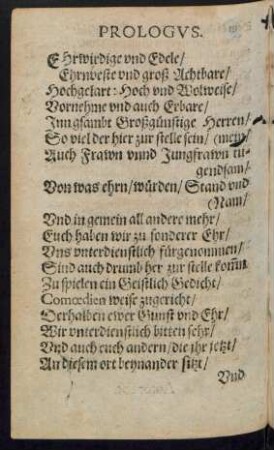 PROLOGVS.
EHrwirdige vnd Edele/
Ehrnveste vnd groß Achtbare/
Hochgelart: Hoch vnd Wolweise/
Vornehme vnd auch Erbare/
Inngsambt Großgünstige Herren/
So viel der hier zur stelle sein/ (mein/
Auch Frawn vnnd Jungfrawn tu-
gendsam/
Von was ehrn/ würden/ Stand vnd
Nam/
Vnd in gemein all andere mehr/
Euch haben wir zu sonderer Ehr/
Vns vnterdienstlich fürgenommen/
Sind auch drumb her zur stelle kom̃n
Zu spielen ein Geistlich Gedicht/
Comœdien weise zugericht/
Derhalben ewer Gunst vnd Ehr/
Wir vnterdienstlich bitten sehr/
Vnd auch euch andern/ die jhr jetzt/
An diesem ort beynander sitzt/
Vnd